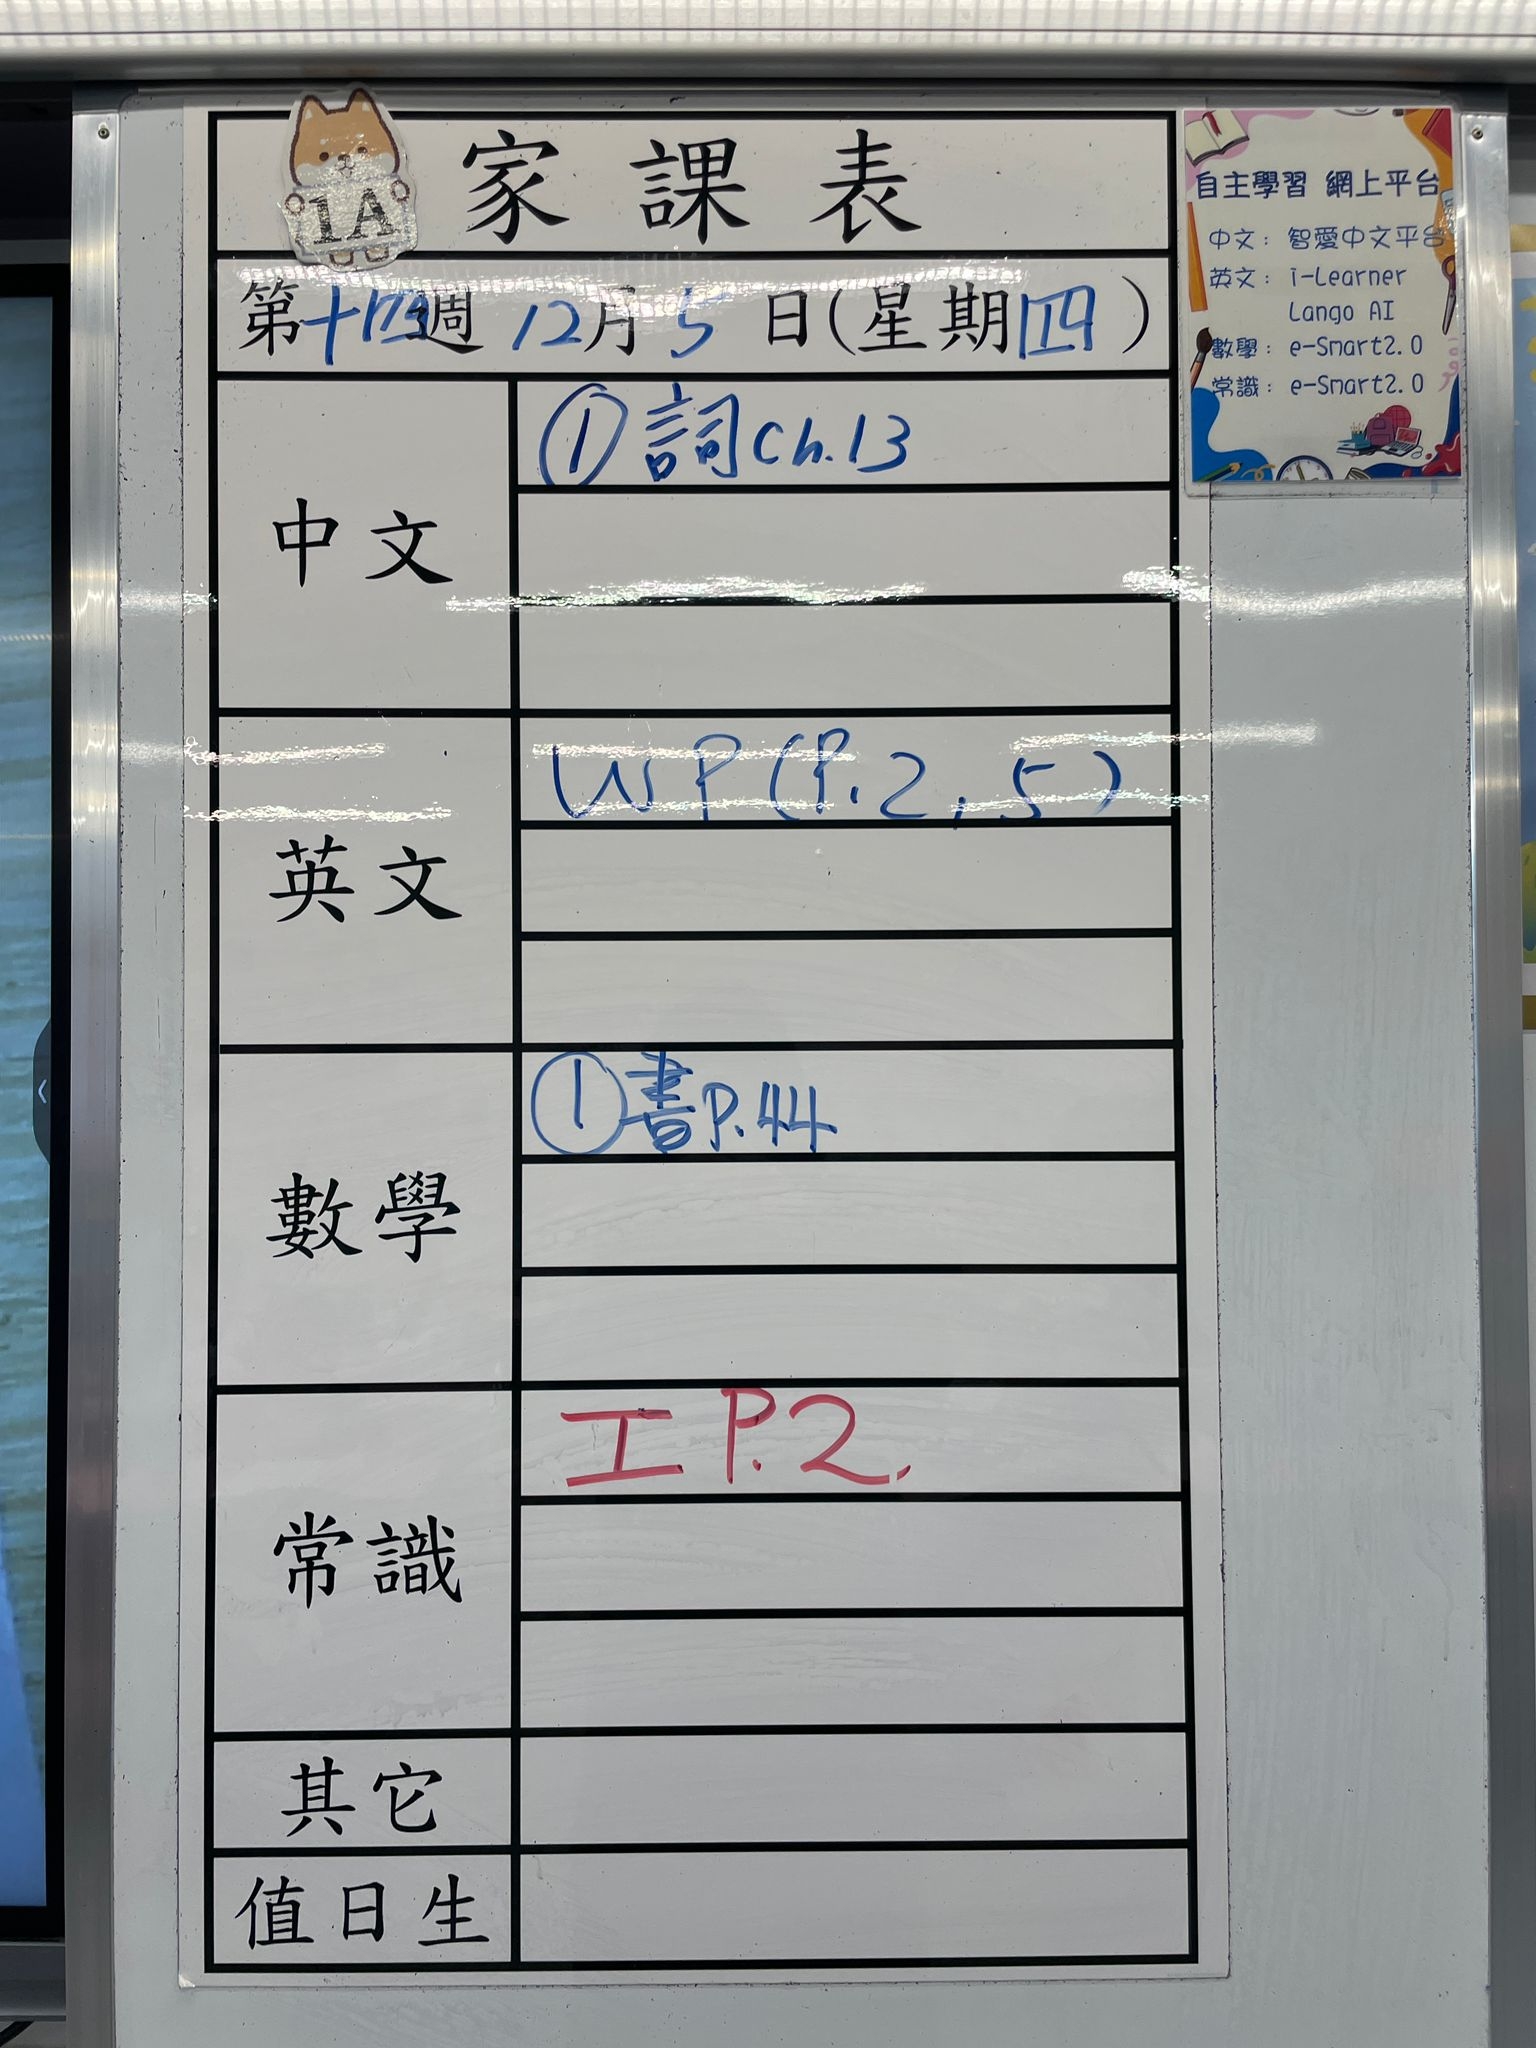 1A
家課表
第十四週 12月5日(星期四)
中文
①詞ch.13
英文
WP(P.2,5)
數學
①書P.44
常識
工P.2.
其它
值日生
自主學習 網上平台
中文：智愛中文平台
英文：i-Learner
Lango AI
數學：e-Smart2.0
常識：e-Smart2.0